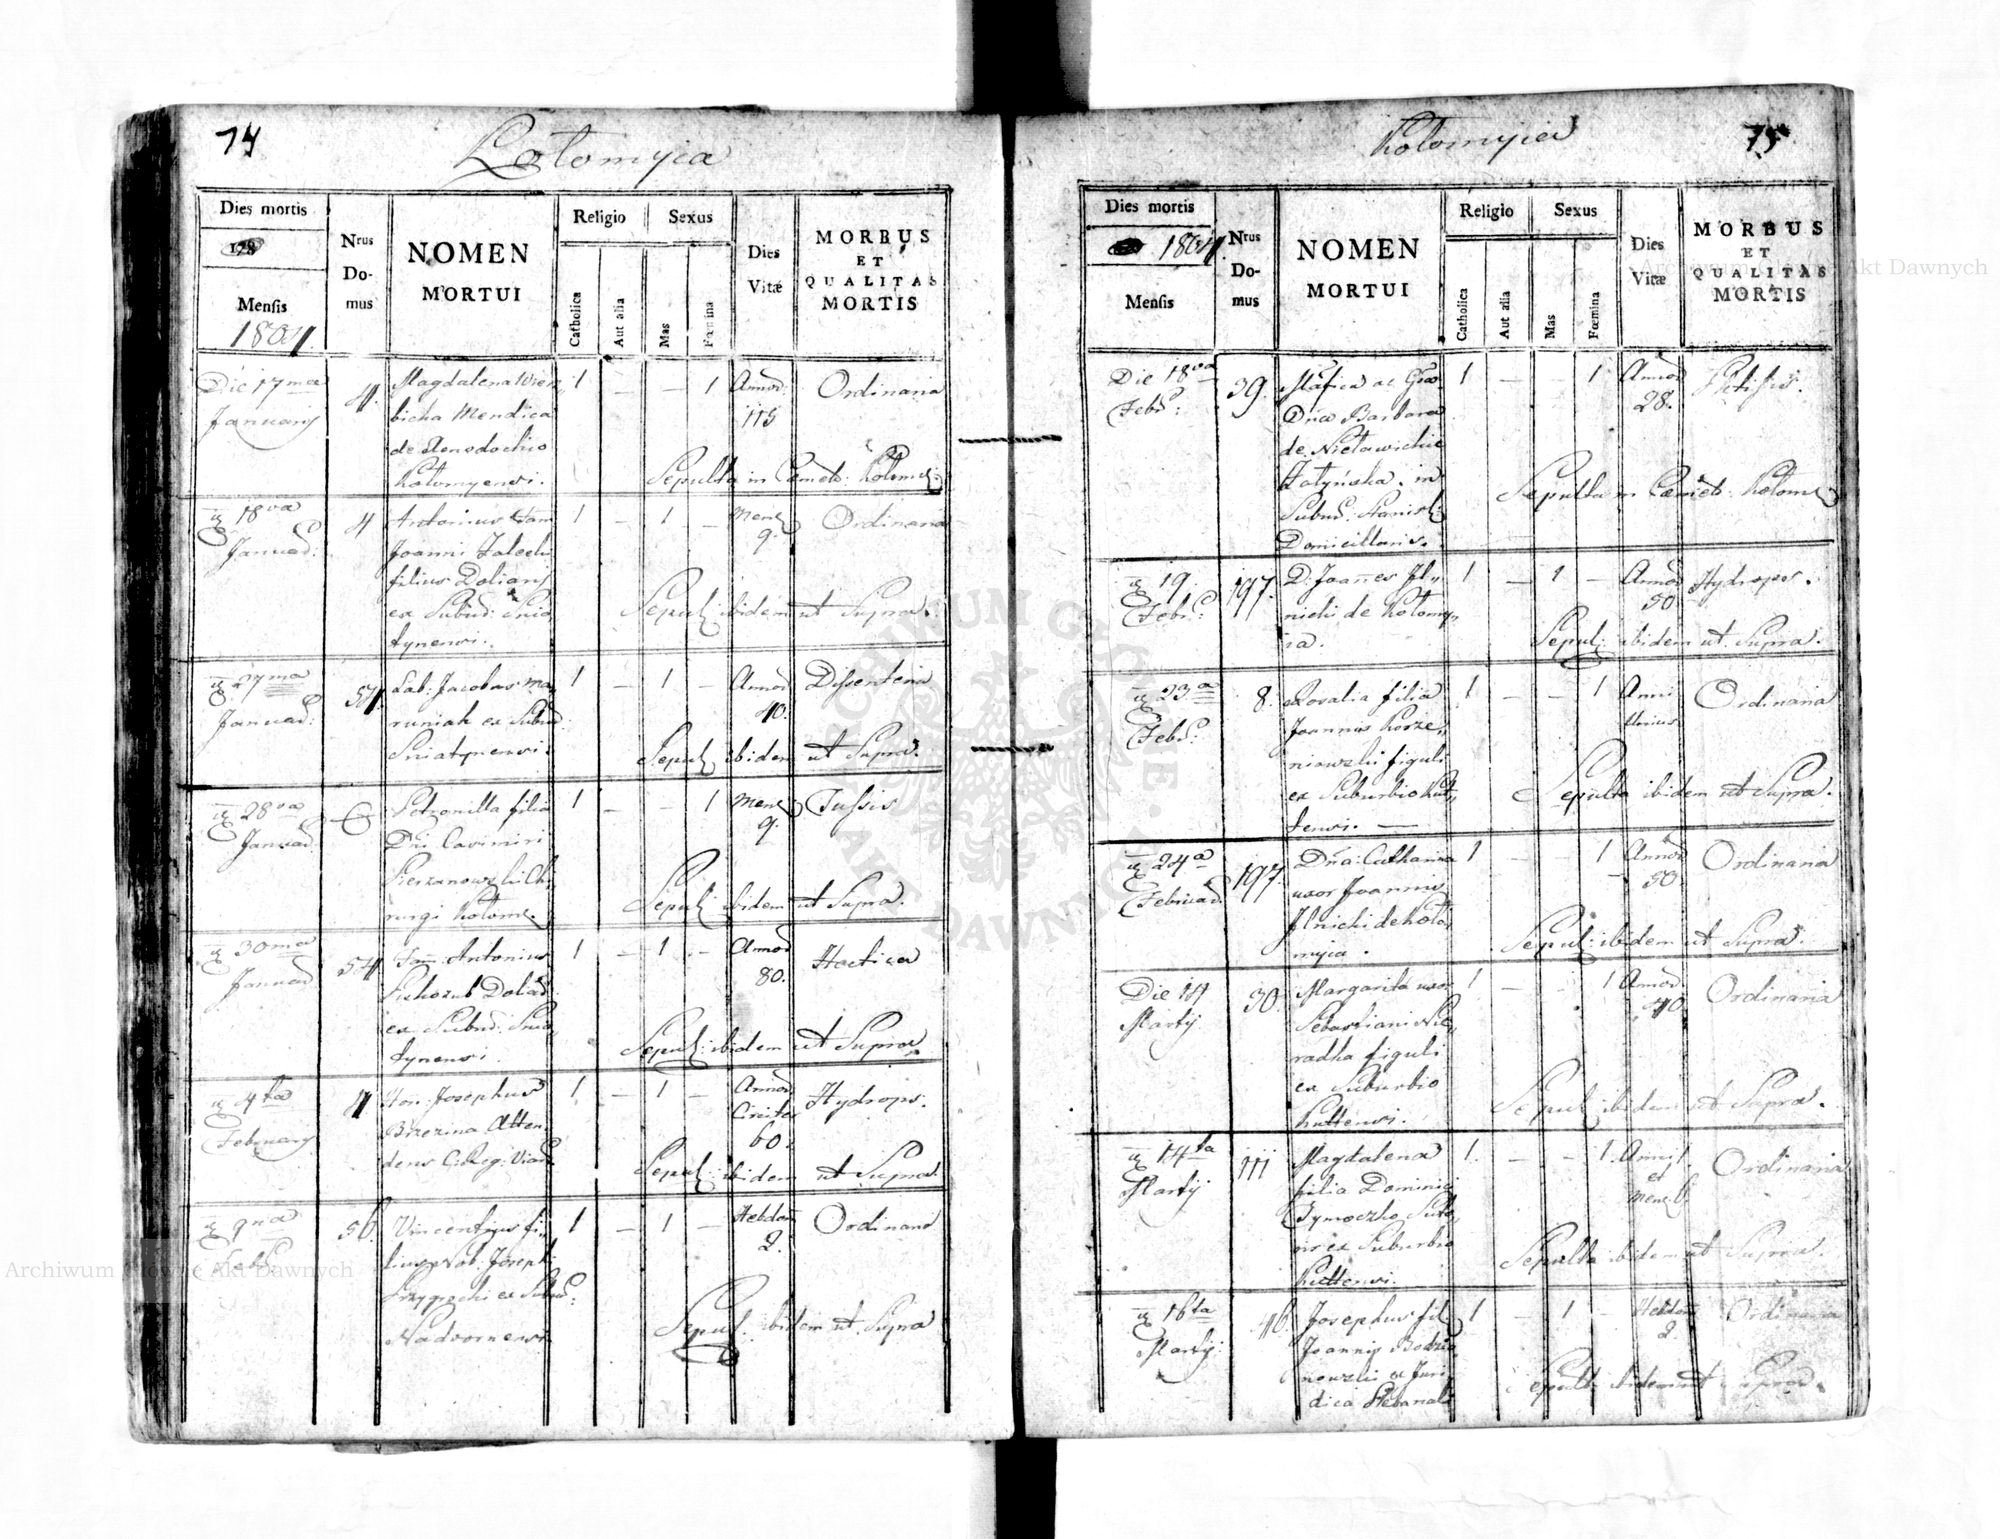 74
Kołomyia
Dies mortis
Nrus Domus
NOMEN MORTUI
Religio
Catholica
Aut alia
Sexus
Mas
Fœmina
Dies Vitæ
MORBUS ET QUALITAS MORTIS
Mensis
1804.
Die 17ma Januarij
4.
Magdalena
bicha Mendica
de Xenodochio
Kołomyensi.
1 — — 1
Annor: 115
Ordinaria
Sepulta in Cœmet: Kołomy:
18va Januar:
4
Antonius
Joannis
filius
ex Suburb: Snia,,
tynensi.
1 — 1 —
Mens 9.
Ordinaria
Sepul: ibidem ut Supra.
27ma Januar:
54.
Lab: Jacobus Ma,,
runiak ex Suburb:
Sniatynensi.
1 — 1 —
Annor 40.
Dissenteria
Sepul: ibidem ut Supra.
28va Januar:
Petronilla filia
Dni Casimiri
Chi,,
rurgi Kołom.
1 — — 1
Mens 9.
Tussis
Sepul: ibidem ut Supra.
30ma Januar
54
Fam: Antonius
ex Suburb: Snia,,
tynensi.
1 — 1 —
Annor 80.
Hectica
Sepul: ibidem ut Supra.
4ta February
4
Hon: Josephus
Brzezina Atten,,
dens C: Reg: Viar:
1 — 1 —
Annor Circiter 60.
Hydrops.
Sepul: ibidem ut Supra.
9na Febr:
56.
Vincentius fi,,
lius Nob: Josephi
ex Suburb:
Nadvornensi
1 — 1 —
Hebdom 2.
Ordinaria
Sepul: ibidem ut Supra
Kołomyia
75
Dies mortis
1804.
Mensis
Nrus Domus
NOMEN MORTUI
Religio
Catholica
Aut alia
Sexus
Mas
Fœmina
Dies Vitæ
MORBUS ET QUALITAS MORTIS
Die 18va Febr:
39.
Mafica ac Gnosa
Dna Barbara
de
in
Suburb: Stanisl:
Domicilians.
1 — — 1
Annor 28.
Phtisis.
Sepulta in Cœmet: Kołom:
19. Febr:
197.
D: Joannes Jl,,
nicki de Kołomy,,
ia.
1 — 1 —
Annor 50
Hydrops.
Sepul: ibidem ut Supra.
23a Febr:
8.
Rosalia filia
Joannis Korze,,
niowski figuli
ex Suburbio Kut,,
tensi. —
1 — — 1
Anni
Ordinaria
Sepulta ibidem ut Supra.
24a Februar:
197.
Dna: Catharina
uxor Joannis
Jlnicki de Koło,,
myia.
1 — — 1
Annor 50.
Ordinaria
Sepul: ibidem ut Supra.
Die 14 Martij
30.
Margarita uxor
Sebastiani
figuli
ex Suburbio
Kuttensi.
1 — — 1
Annor 40.
Ordinaria
Sepul: ibidem ut Supra.
14ta Martij
111
Magdalena
filia Dominici
Tymoczko Suto,,
ris ex Suburbio
Kuttensi.
1. — — 1.
Anni 1. et Mens: 6.
Ordinaria
Sepulta ibidem ut Supra.
16ta Martij
46.
Josephus fil:
Joannis
ex Juri,,
dica Plebanali
1 — 1 —
Hebdom 2.
Ordinaria
Sepult: ibidem ut Supra.
ARCHIWUM GŁÓWNE AKT DAWNYCH
Archiwum Główne Akt Dawnych
Archiwum Główne Akt Dawnych